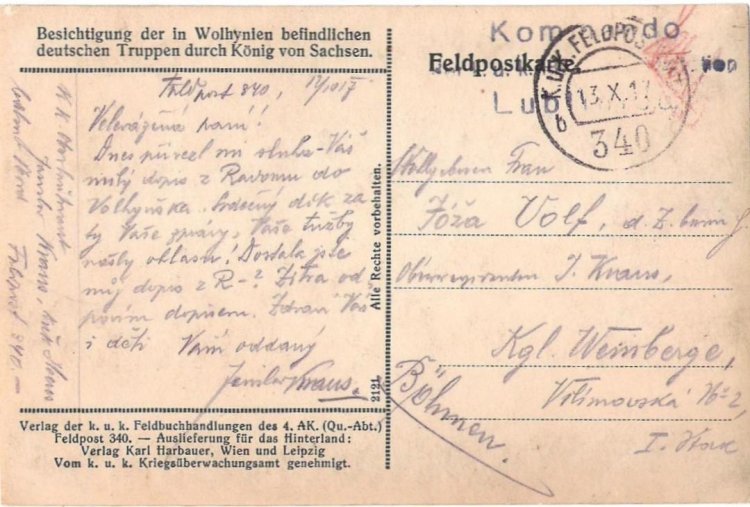 Besichtigung der in Wolhynien befindlichen
deutschen Truppen durch König von Sachsen.
Kommando
Feldpostkarte
Lub
K.U.K. FELDPOSTAMT
13.X.17
b
340
Feldpost 340, 12/10 17
Velevážená paní!
Dnes přivezl mi sluha Váš
milý dopis z do
Volhynska. Srdečný dík za
ty Vaše zprávy, Vaše tužby
našly ohlasu! Dostala jste
můj dopis z R-? Zítra od
povím dopisem. Zdraví Vás
i děti Vám oddaný
Jaroslav Kraus.
Kraus,
Feldpost 340.-
Alle Rechte vorbehalten.
2121
Frau
Jóža Volf, d. Z.
J. Kraus,
Kgl. Weinberge,
No 2,
I. Stock
Böhmen.
Verlag der k. u. k. Feldbuchhandlungen des 4. AK. (Qu.-Abt.)
Feldpost 340. — Auslieferung für das Hinterland:
Verlag Karl Harbauer, Wien und Leipzig
Vom k. u. k. Kriegsüberwachungsamt genehmigt.